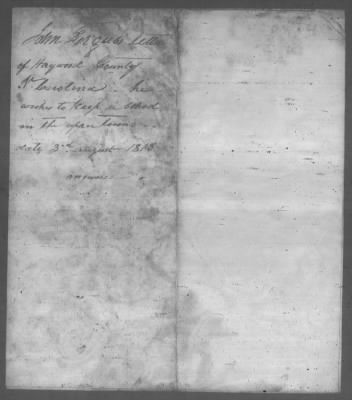 John letter
of Haywood County
N. Carolina - he
wishes to keep a School
in the upper towns -
date 3rd August 18
answered